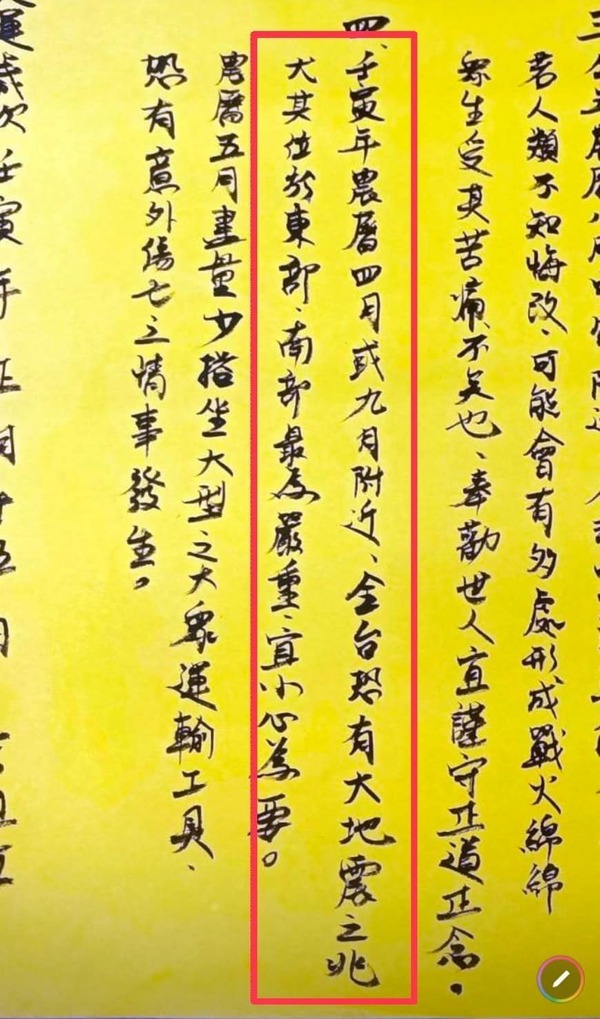 若人類不知悔改、可能會有多處形成戰火綿綿
眾生受其苦痛不矣也、奉勸世人宜謹守正道正念。
四、壬寅年農曆四月或九月附近、全台恐有大地震之兆
尤其位於東部、南部最為嚴重、宜小心為要。
農曆五月盡量少搭坐大型之大眾運輸工具、
恐有意外傷亡之情事發生。
運歲次壬寅年正月十五日